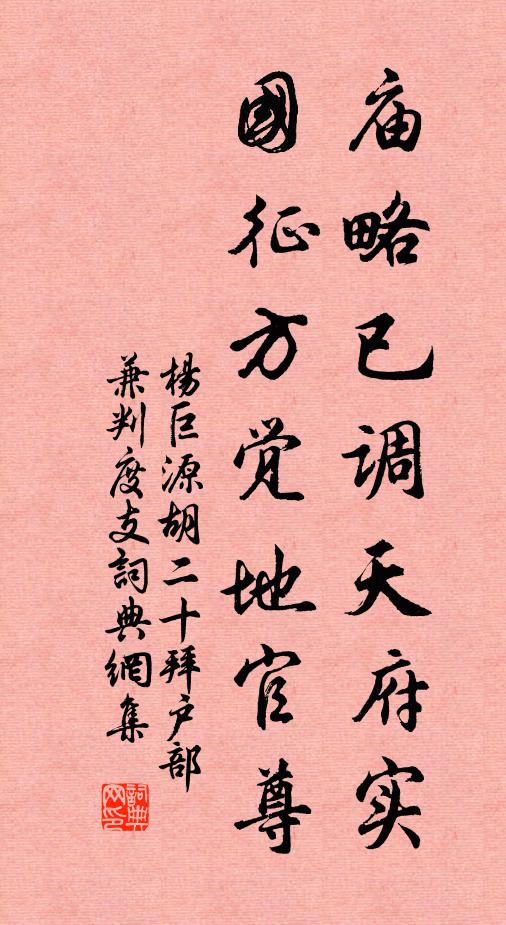 庙略已调天府实
國征方觉地官尊
楊巨源胡二十拜户部
兼判度支詞典網集
詞典網印